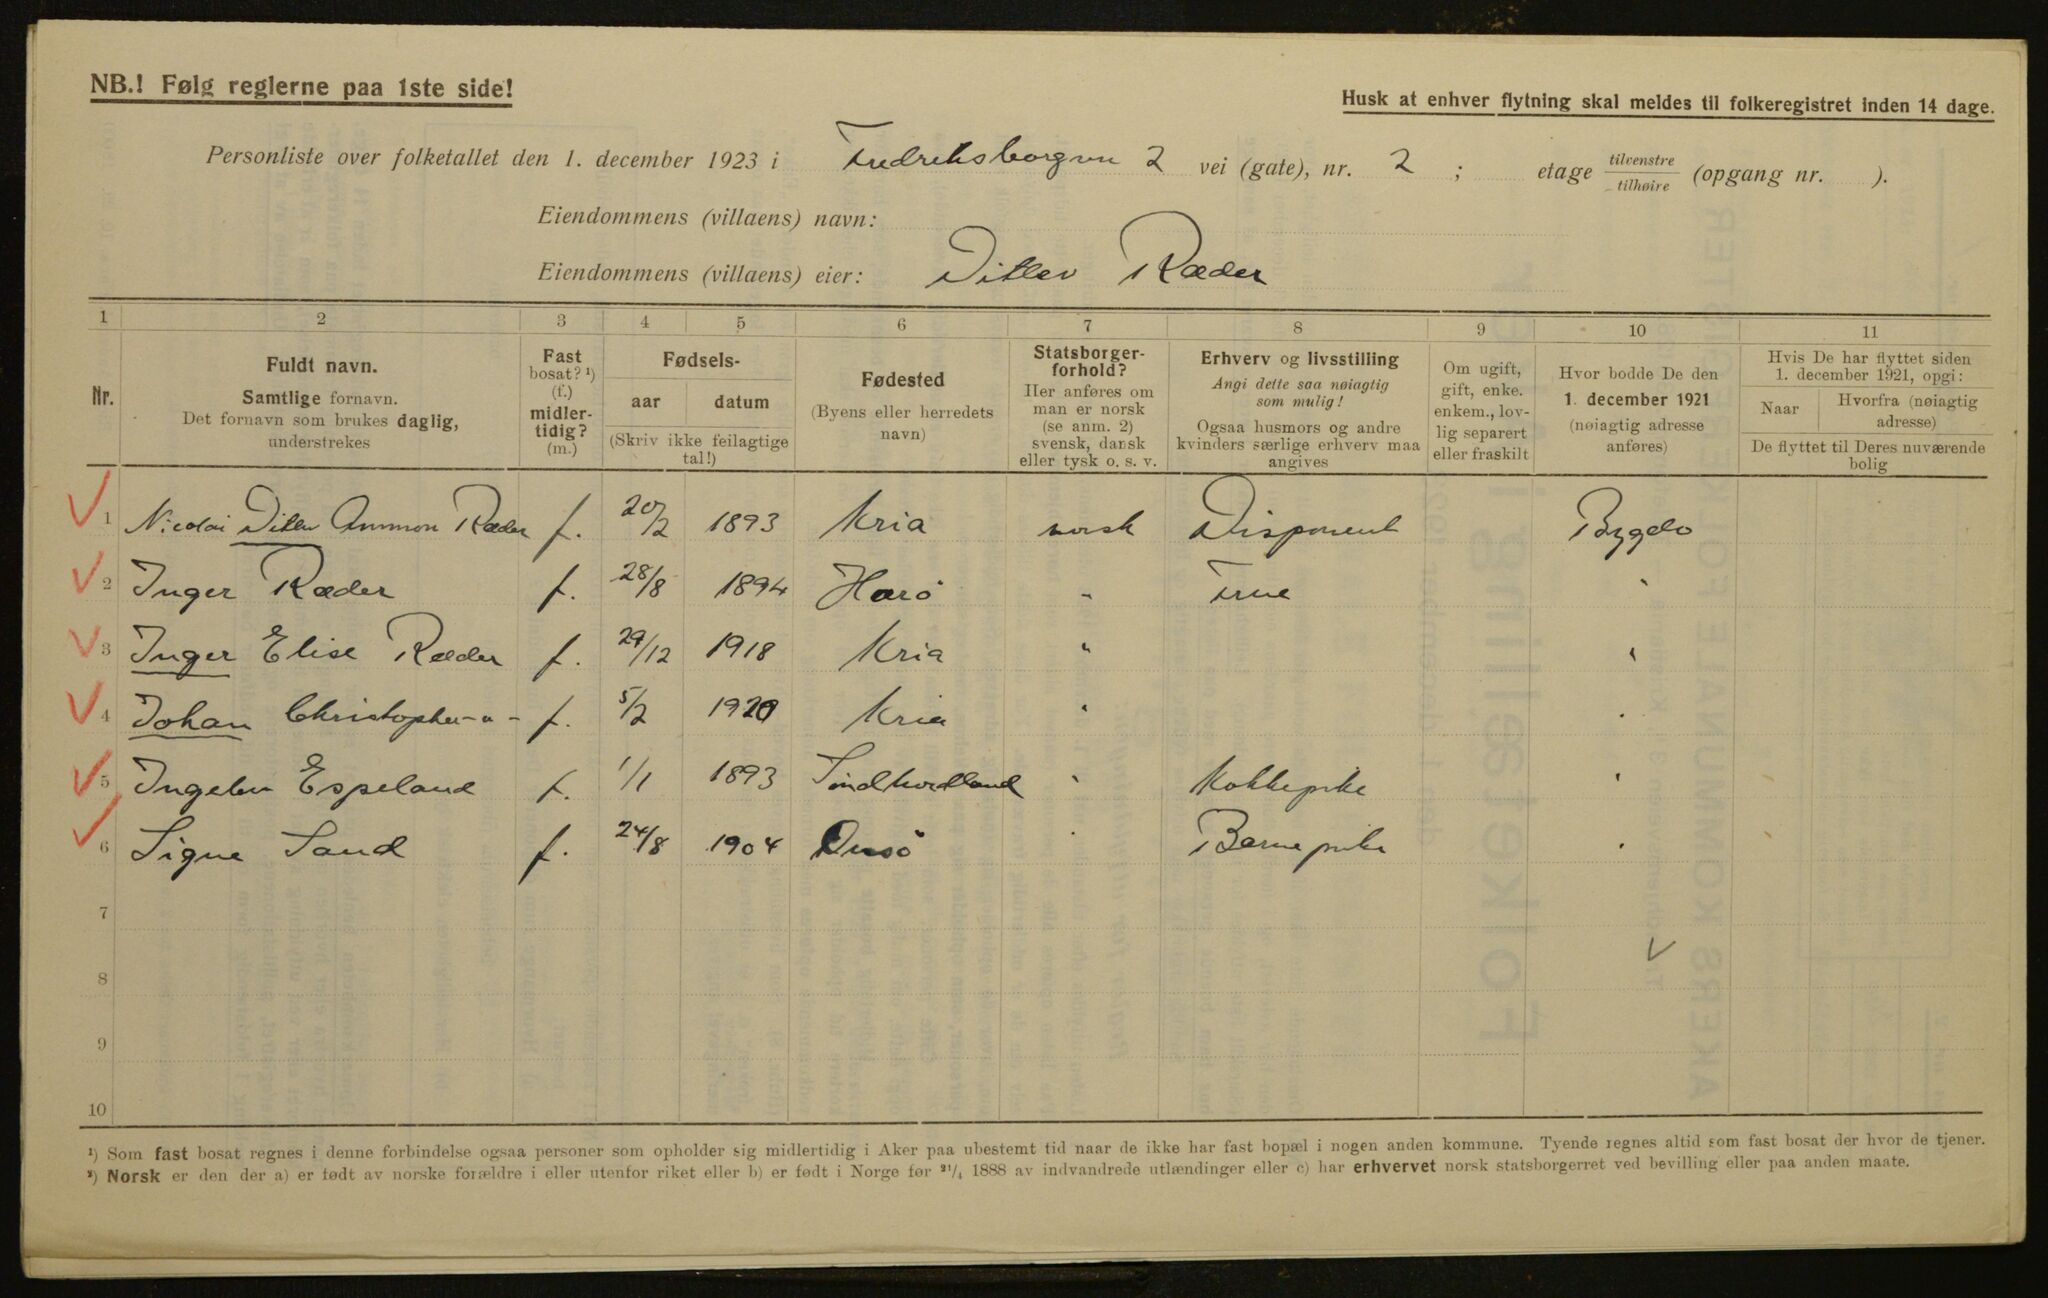 NB.! Følg reglerne paa 1ste side!
Husk at enhver flytning skal meldes til folkeregistret inden 14 dage.
Personliste over folketallet den 1. december 1923 i Fredriksborgvn 2 vei (gate), nr. 2 ; etage tilvenstre/tilhøire (opgang nr. ).
Eiendommens (villaens) navn:
Eiendommens (villaens) eier: Ditlev Ræder
1 2 3 4 5 6 7 8 9 10 11
Nr.
Fuldt navn.
Samtlige fornavn.
Det fornavn som brukes daglig,
understrekes
Fast
bosat? ¹)
(f.)
midler-
tidig?
(m.)
Fødsels-
aar datum
(Skriv ikke feilagtige
tal!)
Fødested
(Byens eller herredets
navn)
Statsborger-
forhold?
Her anføres om
man er norsk
(se anm. 2)
svensk, dansk
eller tysk o. s. v.
Erhverv og livsstilling
Angi dette saa nøiagtig
som mulig!
Ogsaa husmors og andre
kvinders særlige erhverv maa
angives
Om ugift,
gift, enke.
enkem., lov-
lig separert
eller fraskilt
Hvor bodde De den
1. december 1921
(nøiagtig adresse
anføres)
Hvis De har flyttet siden
1. december 1921, opgi:
Naar Hvorfra (nøiagtig
adresse)
De flyttet til Deres nuværende
bolig
1 Nicolai Ditlev Ammon Ræder f. 20/2 1893 Kria norsk Disponent Bygdø
2 Inger Ræder f. 28/8 1894 Horö " Frue "
3 Inger Elise Ræder f. 29/12 1918 Kria " "
4 Johan Christopher -"- f. 5/2 1920 Kria " "
5 Espeland f. 1/1 1893 Söndhordland " Kokkepike "
6 Signe Sand f. 24/8 1904 Onsö " Barnepike "
7
8
9
10
¹) Som fast bosat regnes i denne forbindelse ogsaa personer som opholder sig midlertidig i Aker paa ubestemt tid naar de ikke har fast bopæl i nogen anden kommune. Tyende regnes altid som fast bosat der hvor de tjener.
²) Norsk er den der a) er født av norske forældre i eller utenfor riket eller b) er født i Norge før ²¹/₄ 1888 av indvandrede utlændinger eller c) har erhvervet norsk statsborgerret ved bevilling eller paa anden maate.